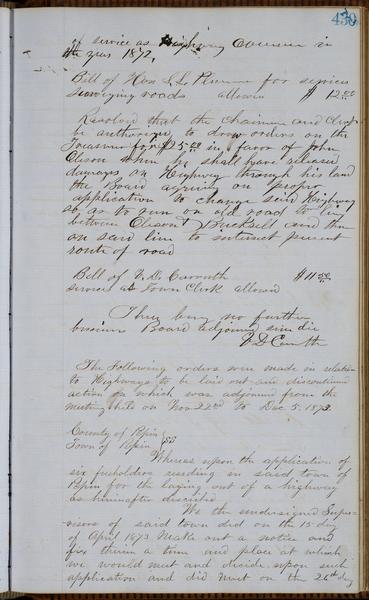 430
of service as Highway Commr in
the year 1872.
Bill of Hon S. L. Plummer for services
surveying roads allowed $12.00
Resolved that the Chairman and Clerk
be authorized to draw orders on the
Treasurer for $25.00 in favor of John
Clison when he shall have released
damages on Highway through his land
the Board agreeing on proper
application to change said Highway
so as to run on old road to line
between Clison & and then
on said line to intersect present
route of road
Bill of V. D. Carruth $11.50
services as Town Clerk allowed
There being no further
business Board adjourned sine die
V D Carruth
The Following orders were made in relation
to Highways to be laid out and discontinued
action on which was adjourned from the
meeting held on Nov. 22nd to Dec 5, 1873.
County of Pepin
Town of Pepin } SS
Whereas upon the application of
six freeholders residing in said town of
Pepin for the laying out of a highway
as hereinafter described
We the undersigned Super-
visors of said town did on the 15 day
of April 1873 Make out a notice and
fix therein a time and place at which
we would meet and decide upon such
application and did meet on the 26th day